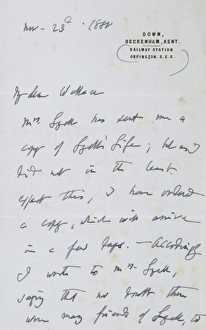 Nov. 23d. 1881
DOWN,
BECKENHAM, KENT.
RAILWAY STATION
ORPINGTON. S.E.R.
My dear Wallace
Mrs Lyell has sent me a
copy of Lyell's Life; but as I
did not in the least
expect this, I have ordered
a copy, which will arrive
in a few days. — Accordingly
I wrote to Mrs. Lyell,
saying that no doubt there
were many friends of Lyell, to